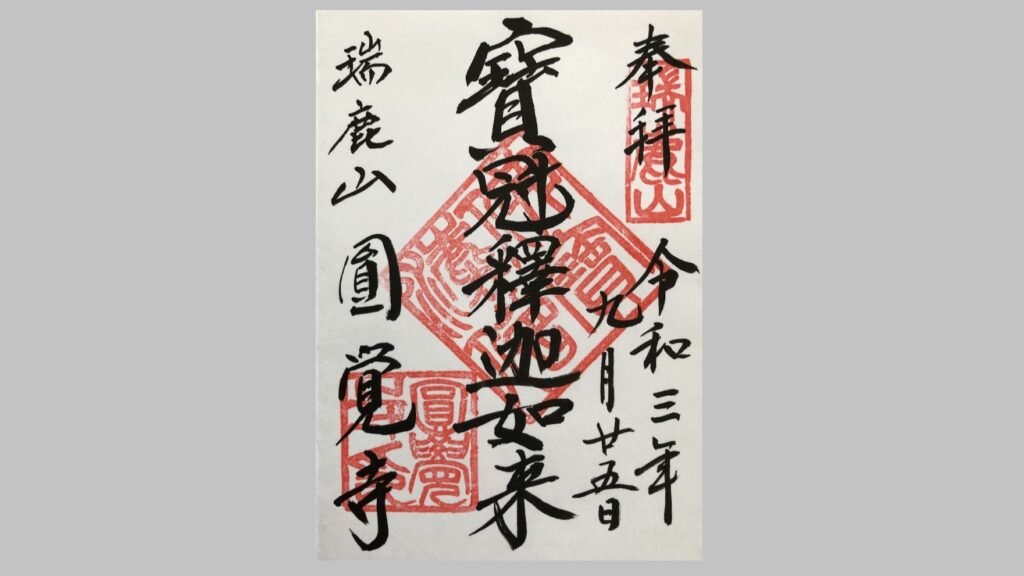 奉拝
令和三年
九月廿五日
寶冠釋迦如来
瑞鹿山 圓覚寺
瑞鹿山